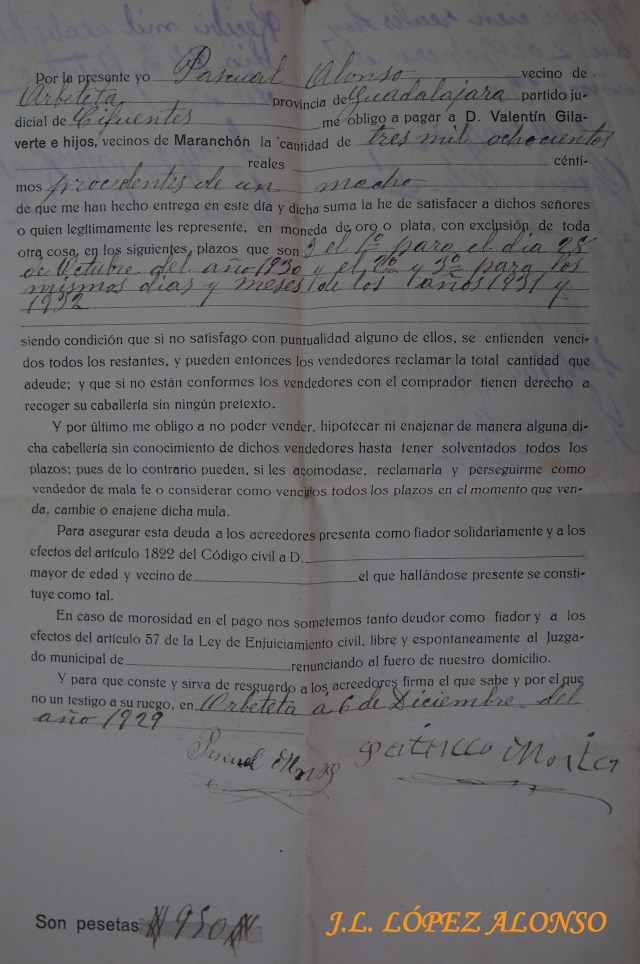 Por la presente yo Pascual Alonso vecino de
Arbeteta provincia de Guadalajara partido ju-
dicial de Cifuentes me obligo a pagar a D. Valentín Gila-
verte e hijos, vecinos de Maranchón la cantidad de tres mil ochocientos
reales cénti-
mos procedentes de un macho
de que me han hecho entrega en este día y dicha suma la he de satisfacer a dichos señores
o quien legítimamente les represente, en moneda de oro o plata, con exclusión de toda
otra cosa, en los siguientes plazos que son 3 el 1º para el dia 28
de Octubre del año 1930 y el 2º y 3º para los
mismos dias y meses de los años 1931 y
1932
siendo condición que si no satisfago con puntualidad alguno de ellos, se entienden venci-
dos todos los restantes, y pueden entonces los vendedores reclamar la total cantidad que
adeude; y que si no están conformes los vendedores con el comprador tienen derecho a
recoger su caballería sin ningún pretexto.
Y por último me obligo a no poder vender, hipotecar ni enajenar de manera alguna di-
cha cabellería sin conocimiento de dichos vendedores hasta tener solventados todos los
plazos; pues de lo contrario pueden, si les acomodase, reclamarla y perseguirme como
vendedor de mala fe o considerar como vencidos todos los plazos en el momento que ven-
da, cambie o enajene dicha mula.
Para asegurar esta deuda a los acreedores presenta como fiador solidariamente y a los
efectos del artículo 1822 del Código civil a D.
mayor de edad y vecino de el que hallándose presente se consti-
tuye como tal.
En caso de morosidad en el pago nos sometemos tanto deudor como fiador y a los
efectos del artículo 57 de la Ley de Enjuiciamiento civil, libre y espontaneamente al Juzga-
do municipal de renunciando al fuero de nuestro domicilio.
Y para que conste y sirva de resguardo a los acreedores firma el que sabe y por el que
no un testigo a su ruego, en Arbeteta á 6 de Diciembre del
año 1929
Pascual Alonso
Son pesetas 950
J.L. LÓPEZ ALONSO